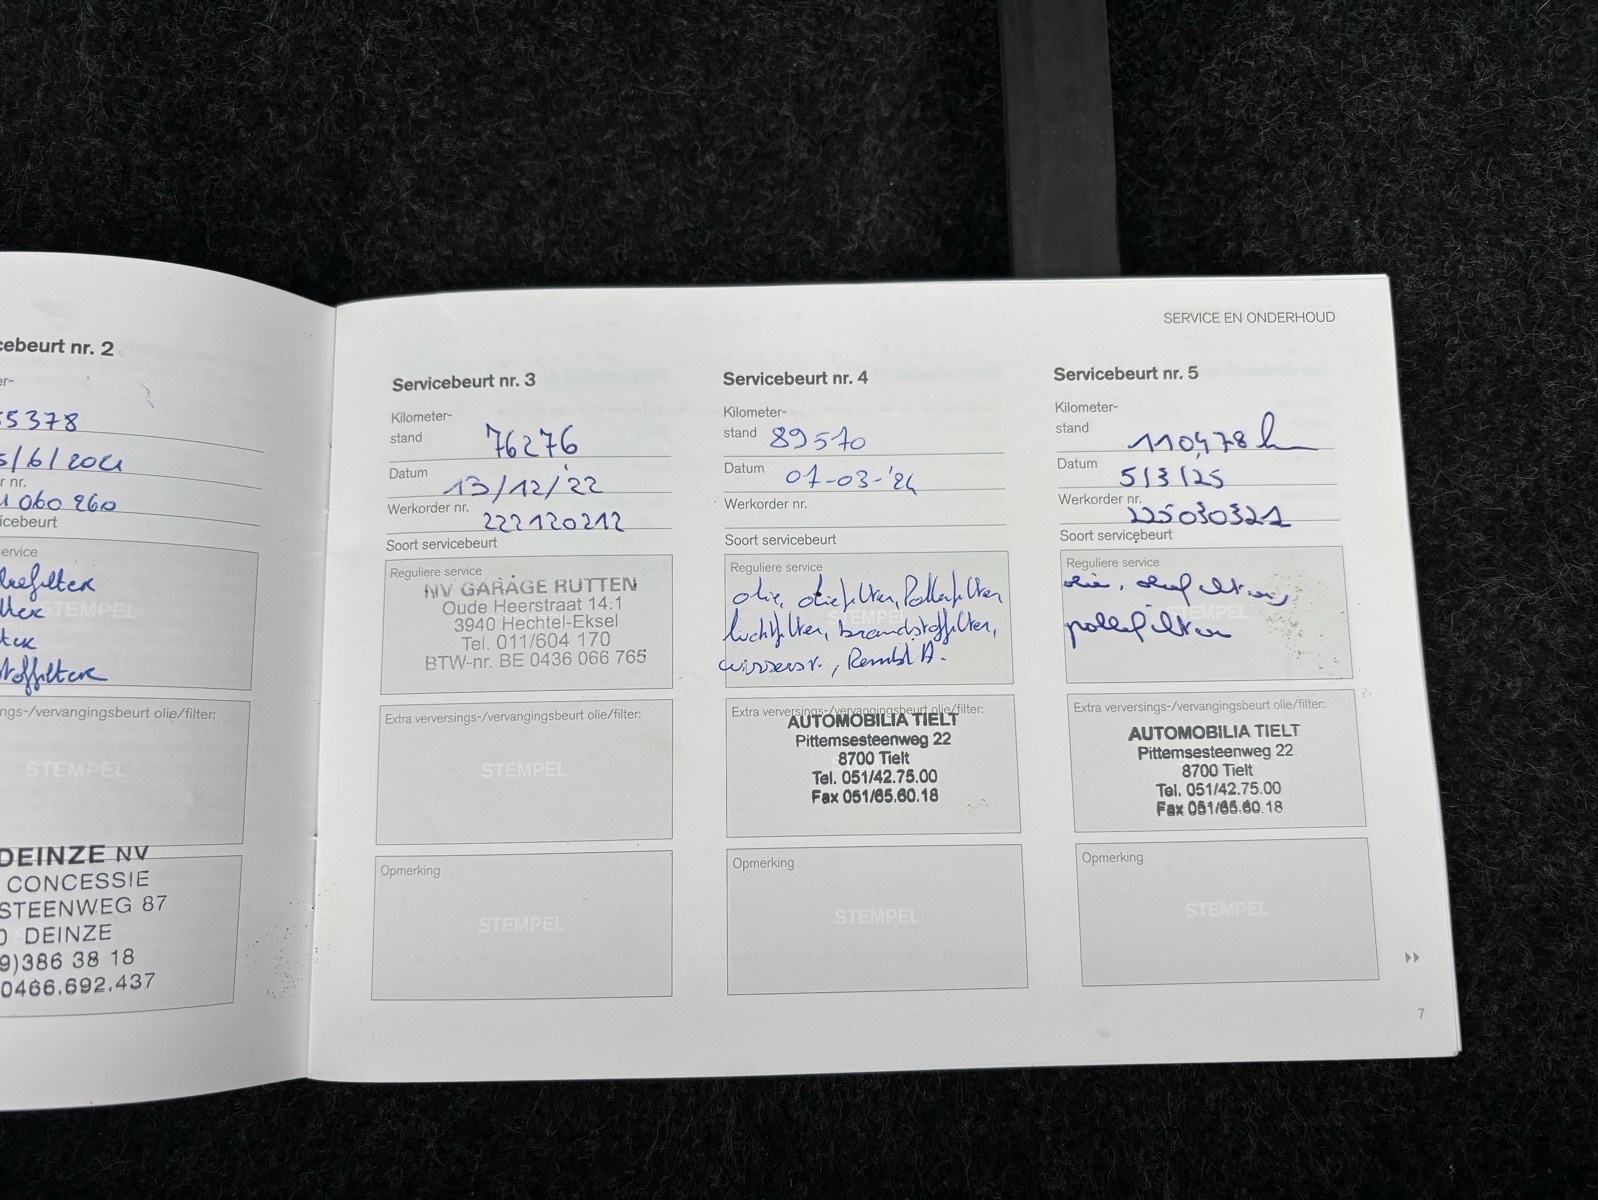 cebeurt nr. 2
er-
5378
5/6/2021
r nr.
1 060 260
icebeurt
ervice
STEMPEL
ngs-/vervangingsbeurt olie/filter:
STEMPEL
DEINZE NV
CONCESSIE
STEENWEG 87
DEINZE
9)386 38 18
0466.692.437
SERVICE EN ONDERHOUD
Servicebeurt nr. 3
Kilometer-
stand 76276
Datum 13/12/'22
Werkorder nr. 222120212
Soort servicebeurt
Reguliere service
NV GARAGE RUTTEN
Oude Heerstraat 14.1
3940 Hechtel-Eksel
Tel. 011/604 170
BTW-nr. BE 0436 066 765
Extra verversings-/vervangingsbeurt olie/filter:
STEMPEL
Opmerking
STEMPEL
Servicebeurt nr. 4
Kilometer-
stand 89570
Datum 07-03-'24
Werkorder nr.
Soort servicebeurt
Reguliere service
olie, oliefilter, Pollenfilter
luchtfilter, brandstoffilter,
Extra verversings-/vervangingsbeurt olie/filter:
AUTOMOBILIA TIELT
Pittemsesteenweg 22
8700 Tielt
Tel. 051/42.75.00
Fax 051/65.60.18
Opmerking
STEMPEL
Servicebeurt nr. 5
Kilometer-
stand 110478
Datum 5/3/25
Werkorder nr. 225030321
Soort servicebeurt
Reguliere service
olie, oliefilter,
STEMPEL
pollenfilter
Extra verversings-/vervangingsbeurt olie/filter:
AUTOMOBILIA TIELT
Pittemsesteenweg 22
8700 Tielt
Tel. 051/42.75.00
Fax 051/65.60.18
Opmerking
STEMPEL
7